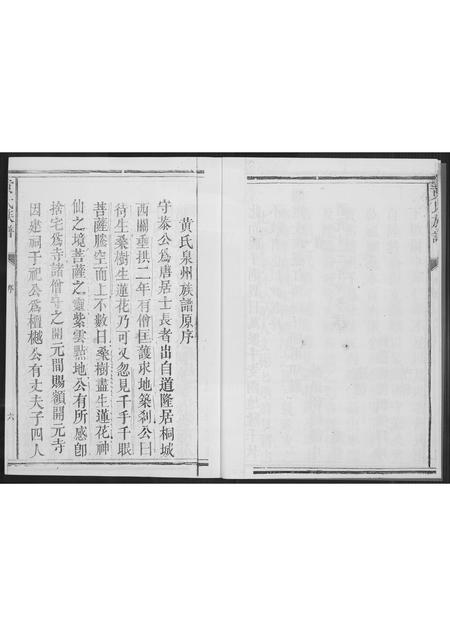 黃氏族譜
黃氏泉州族譜原序
守泰公爲唐居士長者出自道隆居桐城
西關垂拱二年有僧匡護求地築剎公曰
待生桑樹生蓮花乃可又忽見千手千眼
菩薩騰空而上不數日桑樹盡生蓮花神
仙之境菩薩之靈紫雲點地公有所感卽
捨宅爲寺諸僧守之開元間賜額開元寺
因建祠于祀公爲檀樾公有丈夫子四人
氏族譜
序
六